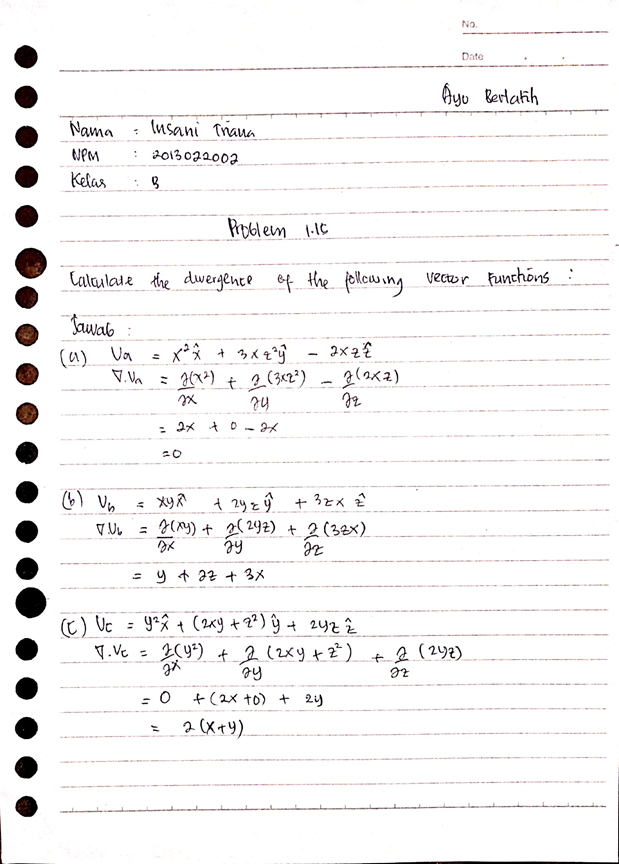 No.
Date
Ayu Berlatih
Nama : Insani Triana
NPM : 2013022002
Kelas : B
Problem 1.15
Calculate the divergence of the following vector functions :
Jawab :
(a) Va = x²x̂ + 3xz²ŷ - 2xzẑ
∇.Va = ∂(x²)/∂x + ∂(3xz²)/∂y - ∂(2xz)/∂z
= 2x + 0 - 2x
= 0
(b) Vb = xyx̂ + 2yzŷ + 3zx ẑ
∇.Vb = ∂(xy)/∂x + ∂(2yz)/∂y + ∂(3zx)/∂z
= y + 2z + 3x
(c) Vc = y²x̂ + (2xy + z²) ŷ + 2yz ẑ
∇.Vc = ∂(y²)/∂x + ∂/∂y (2xy + z²) + ∂/∂z (2yz)
= 0 + (2x + 0) + 2y
= 2(x+y)